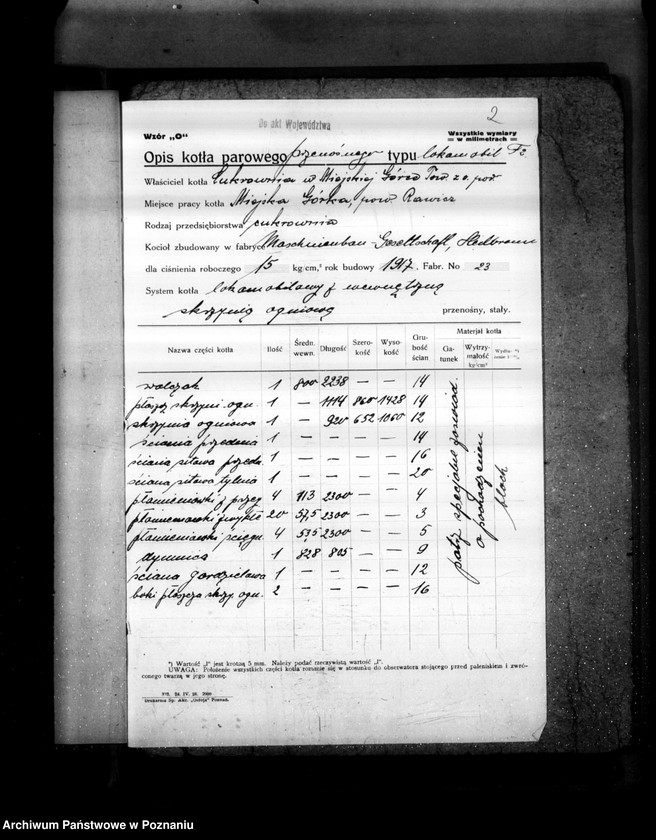 2
Do akt Województwa
Wzór „O“
Wszystkie wymiary
= w milimetrach =
Opis kotła parowego przenośnego typu lokomobil
Właściciel kotła Cukrownia w Miejskiej Górce
Miejsce pracy kotła Miejska Górka, pow. Rawicz
Rodzaj przedsiębiorstwa cukrownia
Kocioł zbudowany w fabryce Maschinenbau-Gesellschaft, Heilbronn
dla ciśnienia roboczego 15 kg/cm,² rok budowy 1917, Fabr. No 23
System kotła lokomobilowy z wewnętrzną
skrzynią ogniową przenośny, stały.
Nazwa części kotła Ilość Średn. wewn. Długość Szerokość Wysokość Grubość ścian Materjał kotła Gatunek Wytrzymałość kg/cm²
walczak 1 800 2238 — — 14
płaszcz skrzyni ogn. 1 — 1114 860 1428 14
skrzynia ogniowa 1 — 920 652 1060 12
ściana przednia 1 — — — — 14
ściana sitowa przedn. 1 — — — — 16
ściana sitowa tylnia 1 — — — — 20
płomieniówki 4 113 2300 — — 4
płomieniówki zwykłe 20 57,5 2300 — — 3
płomieniówki ściągn. 4 53,5 2300 — — 5
dymnica 1 828 805 — — 9
ściana gardzielowa 1 — — — — 12
boki płaszcza skrzy. ogn. 2 — — — — 16
patrz specjalne
o pochodzeniu
blach
*) Wartość „l“ jest krotzą 5 mm. Należy podać rzeczywistą wartość „l“.
UWAGA: Położenie wszystkich części kotła rozumie się w stosunku do obserwatora stojącego przed paleniskiem i zwró-
conego twarzą w jego stronę.
Drukarnia Sp. Akc. „Ostoja“ Poznań.
Archiwum Państwowe w Poznaniu